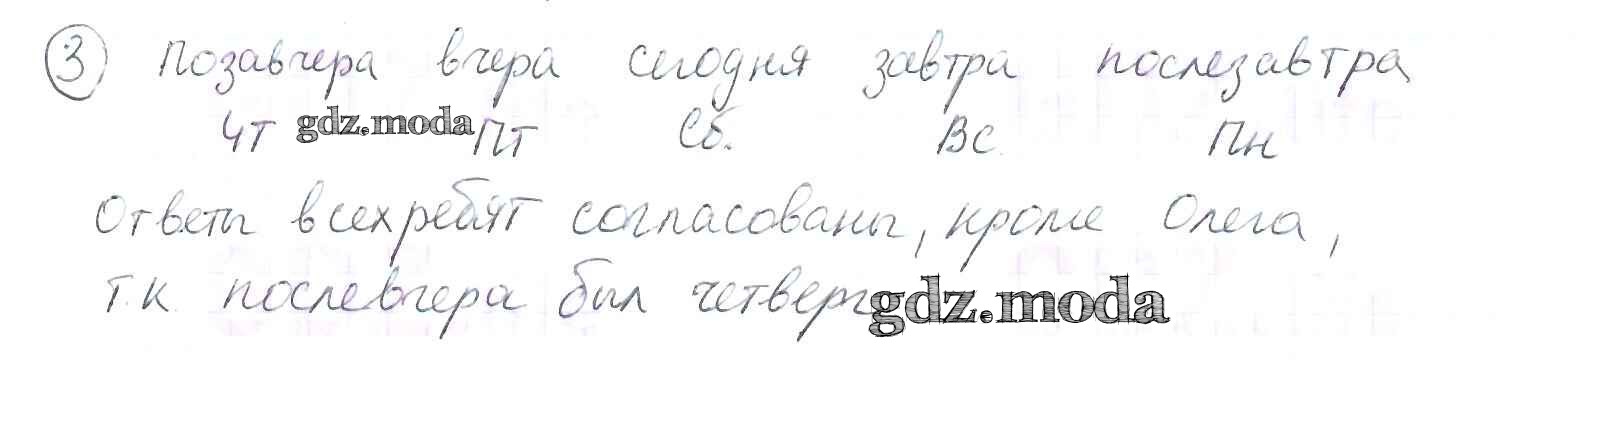 3 Позавчера вчера сегодня завтра послезавтра
Чт gdz.moda Пт Сб. Вс Пн
Ответы всех ребят согласованы, кроме Олега,
т.к послевчера был четверг gdz.moda